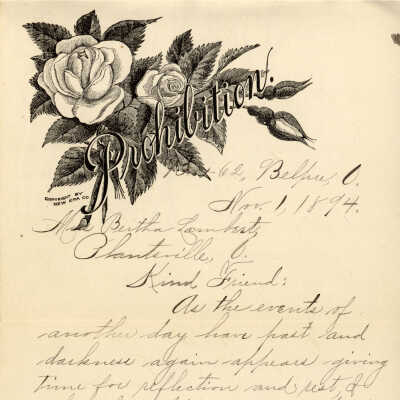 Prohibition.
COPYRIGHT BY
NEW ERA CO.
62, Belpre, O.
Nov. 1, 1894.
Miss Bertha Lambert,
Plantsville, O.
Kind Friend:
As the events of
another day have past and
darkness again appears giving
time for reflection and rest, I